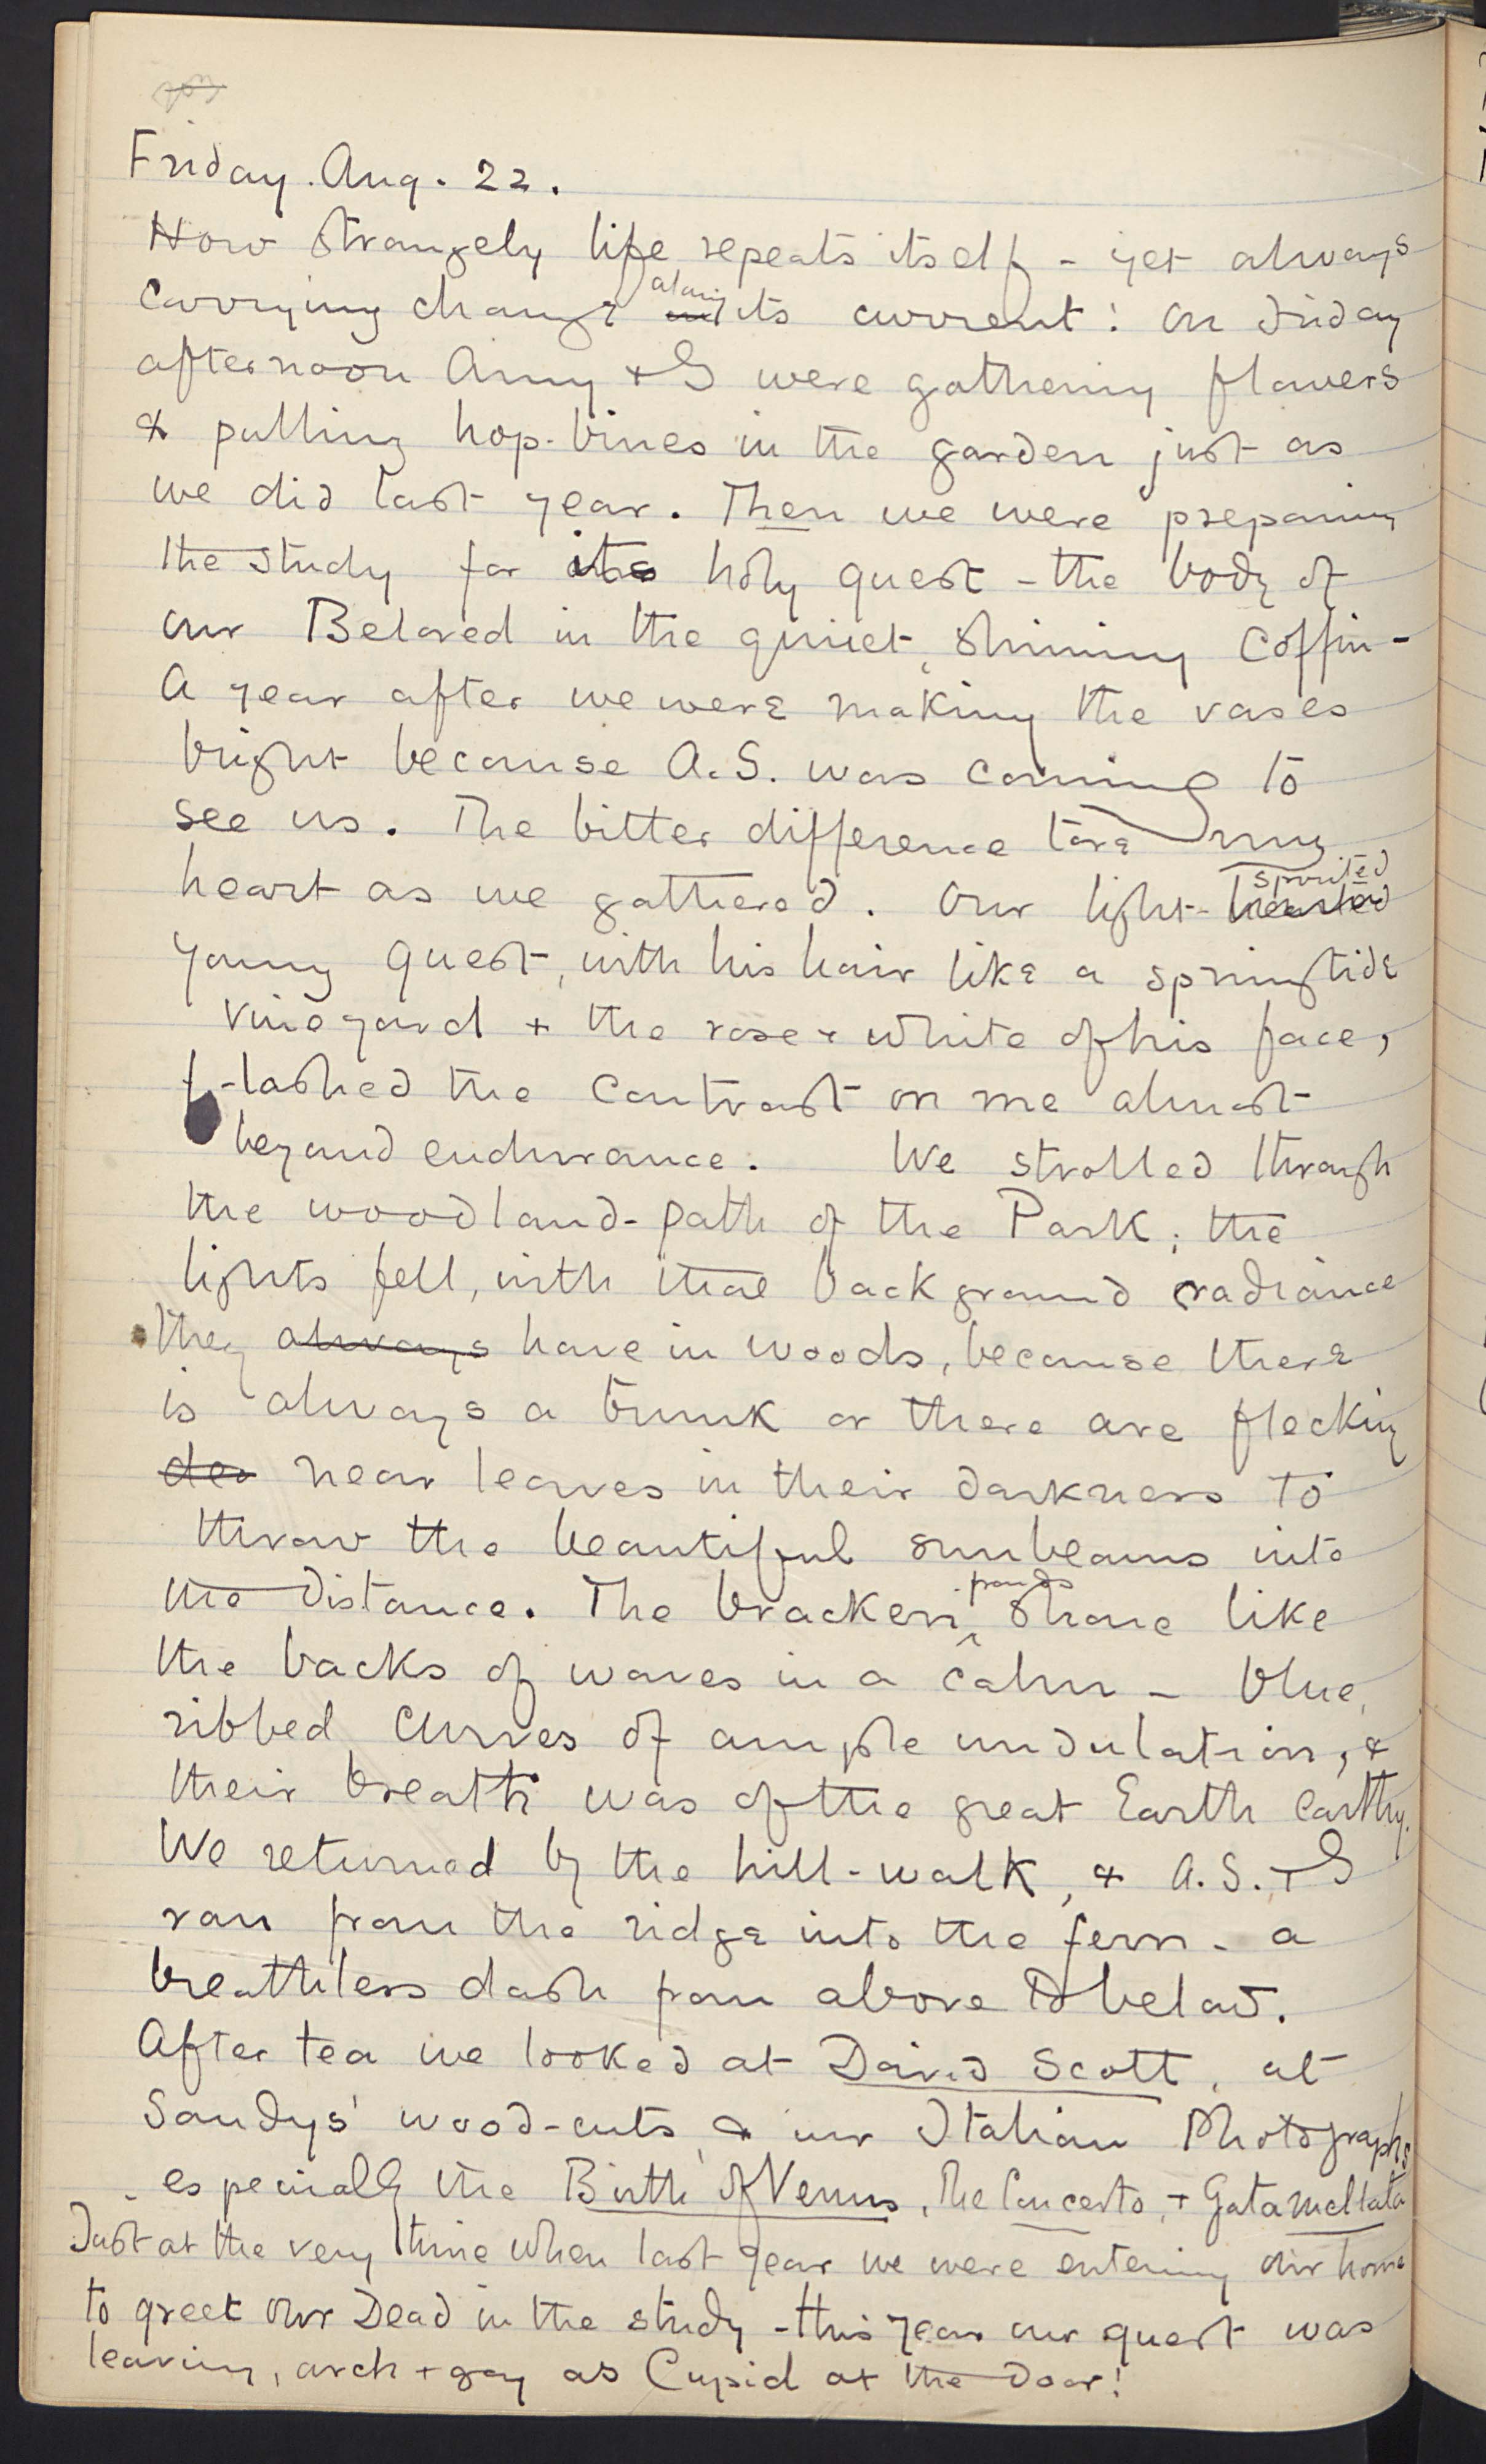 Friday. Aug. 22.
How strangely life repeats itself - yet always
carrying change ~~in~~ along its current! On Friday
afternoon Amy & I were gathering flowers
& pulling hop-bines in the garden just as
we did last year. Then we were preparing
the study for its holy guest - the body of
our Beloved in the quiet, shining coffin -
A year after we were making the vases
bright because A.S. was coming to
see us. The bitter difference tore my
heart as we gathered. Our light-~~hearted~~ spirited
young guest, with his hair like a springtide
vineyard + the rose & white of his face,
f-lashed the contrast on me almost
beyond endurance. We strolled through
the woodland-path of the Park; the
lights fell, with that background radiance
they ~~always~~ have in woods, because there
is always a trunk or there are flecking
~~der~~ near leaves in their darkness to
throw the beautiful sunbeams into
the distance. The bracken-fronds shone like
the backs of waves in a calm - blue,
ribbed curves of ample undulation, &
their breath was of the great Earth earthy.
We returned by the hill-walk, & A.S. + I
ran from the ridge into the fern - a
breathless dash from above to below.
After tea we looked at David Scott, at
Sandys' wood-cuts, & our Italian Photographs
especially the Birth of Venus, The Concerto, + Gatamellata
Just at the very time when last year we were entering our home
to greet our Dead in the study - this year our guest was
leaving, arch + gay as Cupid at the Door!